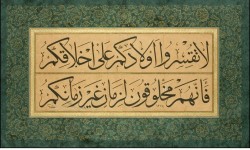 لا تقسروا اولادكم على اخلاقكم
فانهم مخلوقون لزمان غير زمانكم